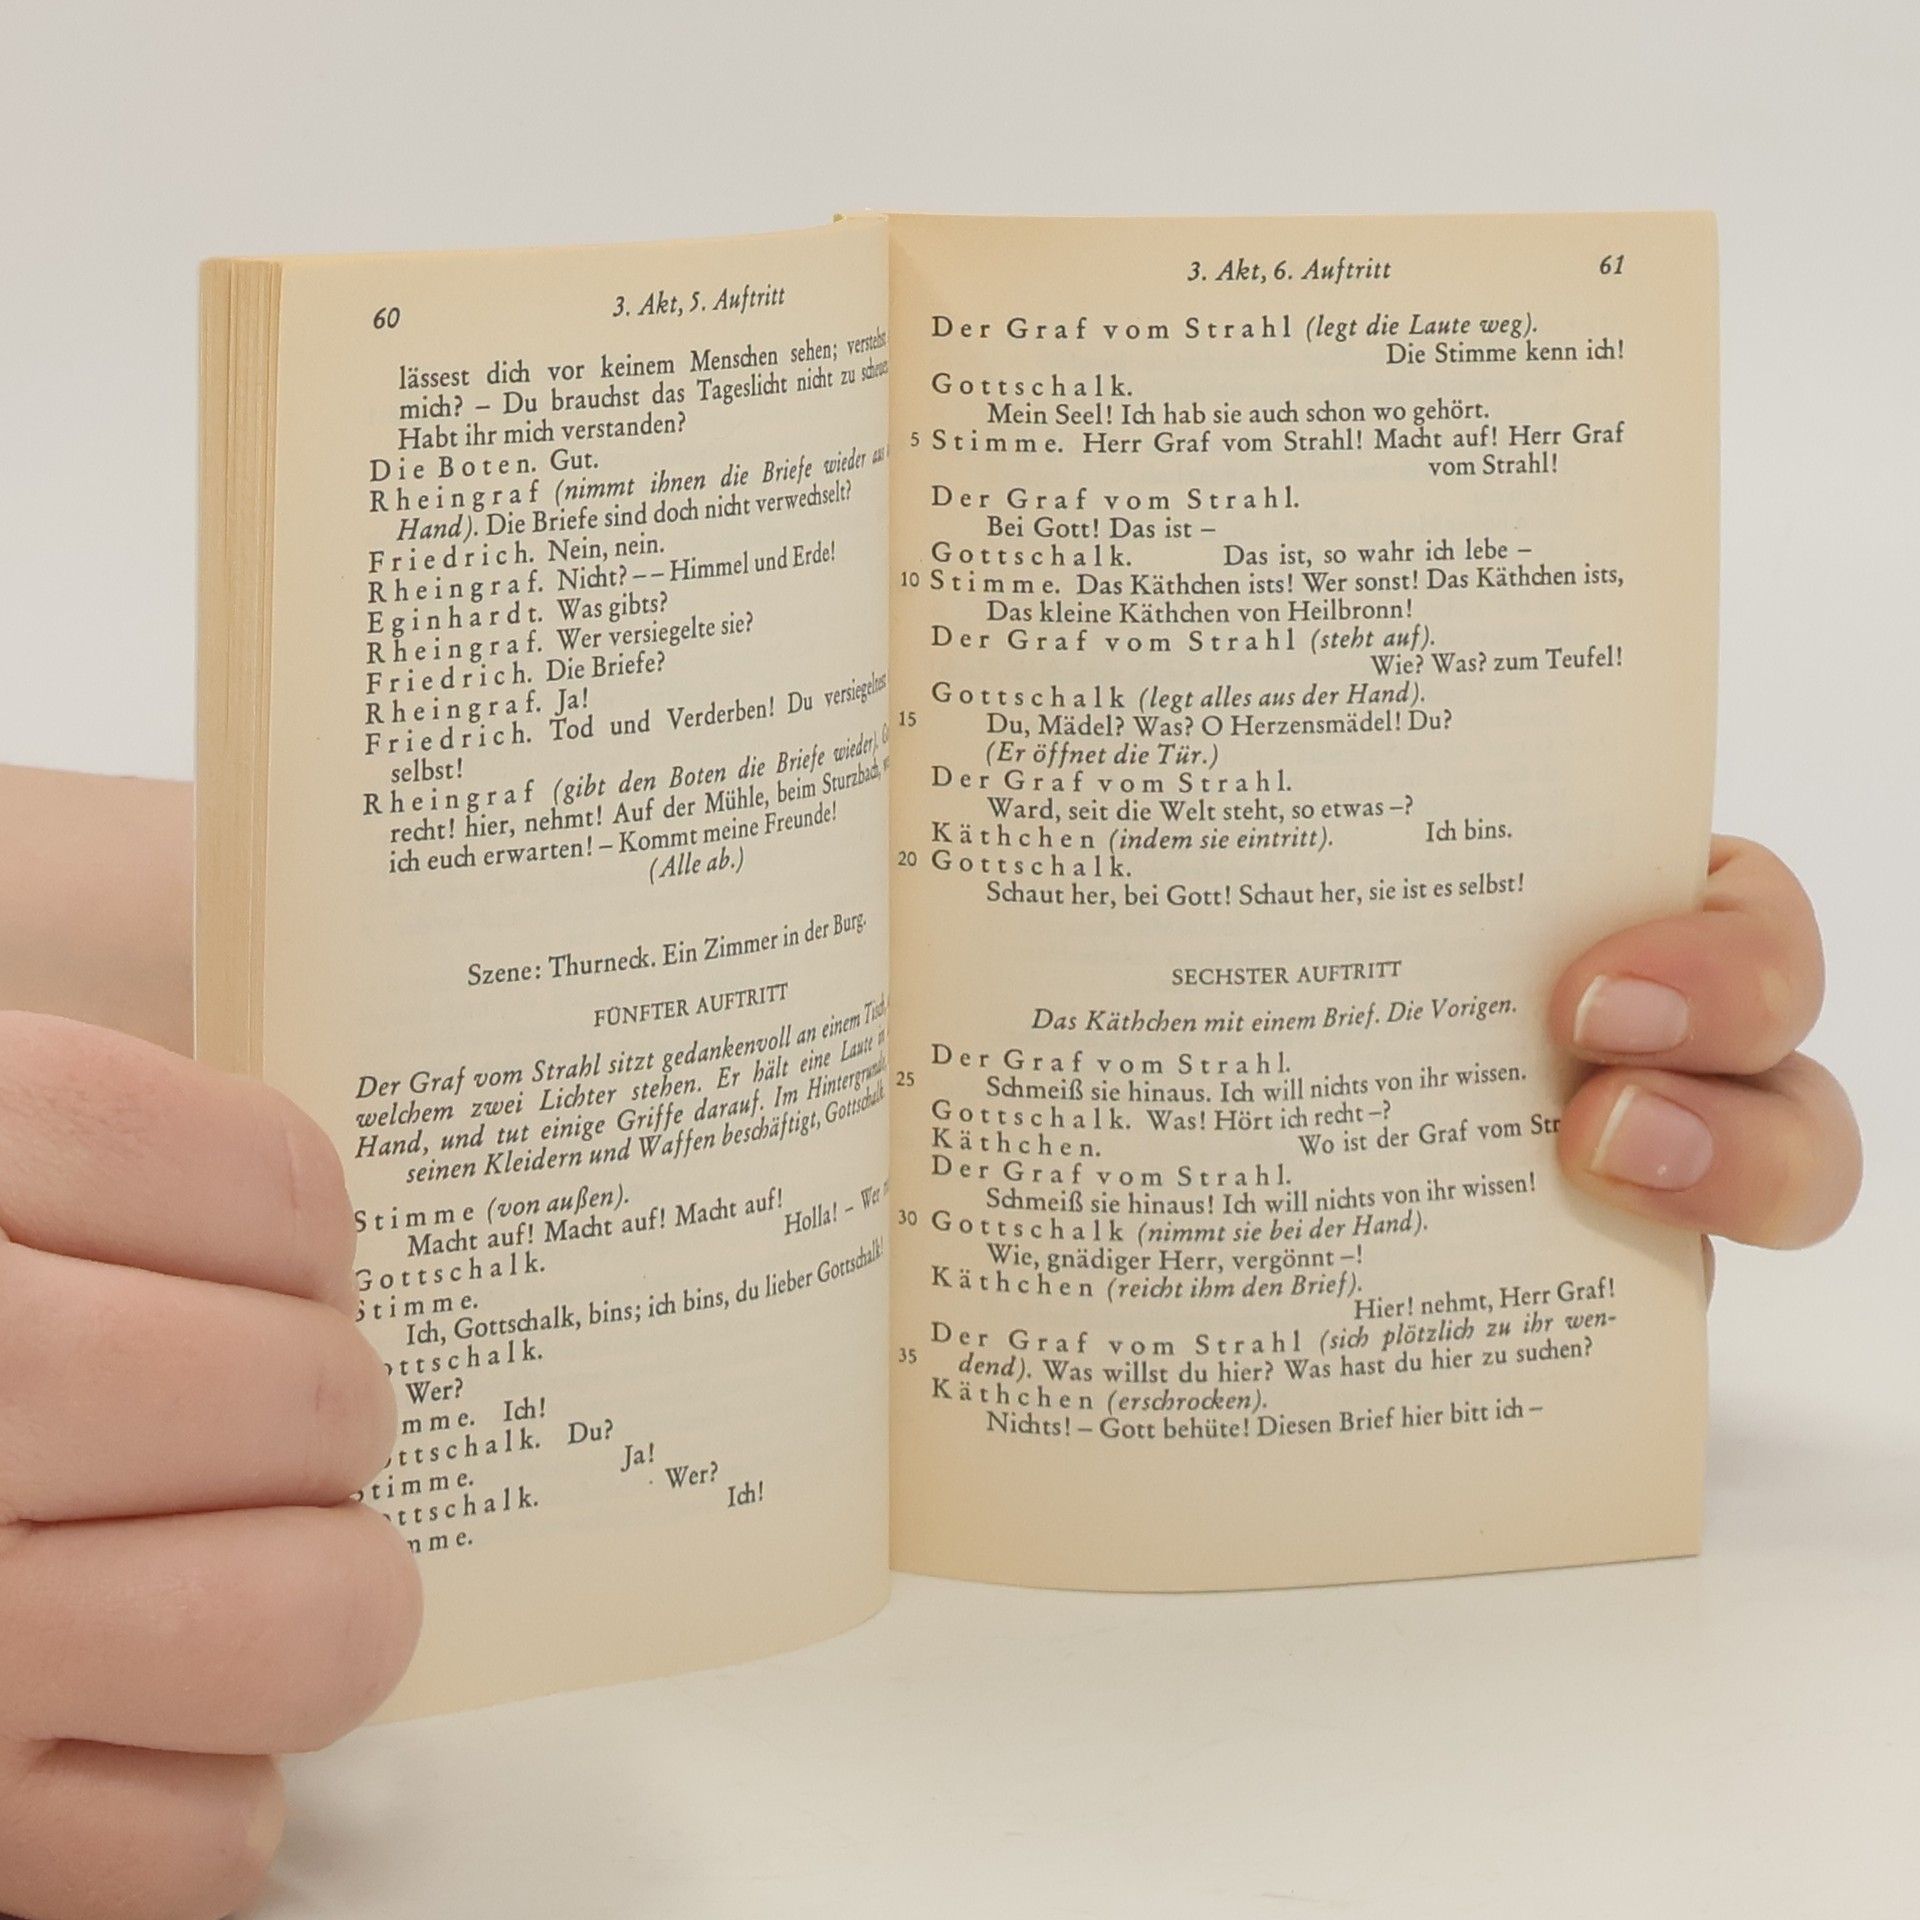 60 3. Akt, 5. Auftritt
lässest dich vor keinem Menschen sehen; verstehst
mich? – Du brauchst das Tageslicht nicht zu scheuen.
Habt ihr mich verstanden?
Die Boten. Gut.
Rheingraf (nimmt ihnen die Briefe wieder aus
Hand). Die Briefe sind doch nicht verwechselt?
Friedrich. Nein, nein.
Rheingraf. Nicht? – – Himmel und Erde!
Eginhardt. Was gibts?
Rheingraf. Wer versiegelte sie?
Friedrich. Die Briefe?
Rheingraf. Ja!
Friedrich. Tod und Verderben! Du versiegeltest
selbst!
Rheingraf (gibt den Boten die Briefe wieder).
recht! hier, nehmt! Auf der Mühle, beim Sturzbach,
ich euch erwarten! – Kommt meine Freunde!
(Alle ab.)
Szene: Thurneck. Ein Zimmer in der Burg.
FÜNFTER AUFTRITT
Der Graf vom Strahl sitzt gedankenvoll an einem Tisch,
welchem zwei Lichter stehen. Er hält eine Laute
Hand, und tut einige Griffe darauf. Im Hintergrunde,
seinen Kleidern und Waffen beschäftigt, Gottschalk
Stimme (von außen).
Macht auf! Macht auf! Macht auf!
Gottschalk. Holla! – Wer
Stimme.
Ich, Gottschalk, bins; ich bins, du lieber Gottschalk!
ottschalk.
Wer?
mme. Ich!
ttschalk. Du?
timme. Ja!
ottschalk. Wer?
mme. Ich!
3. Akt, 6. Auftritt 61
Der Graf vom Strahl (legt die Laute weg).
Die Stimme kenn ich!
Gottschalk.
Mein Seel! Ich hab sie auch schon wo gehört.
5 Stimme. Herr Graf vom Strahl! Macht auf! Herr Graf
vom Strahl!
Der Graf vom Strahl.
Bei Gott! Das ist –
Gottschalk. Das ist, so wahr ich lebe –
10 Stimme. Das Käthchen ists! Wer sonst! Das Käthchen ists,
Das kleine Käthchen von Heilbronn!
Der Graf vom Strahl (steht auf).
Wie? Was? zum Teufel!
Gottschalk (legt alles aus der Hand).
15 Du, Mädel? Was? O Herzensmädel! Du?
(Er öffnet die Tür.)
Der Graf vom Strahl.
Ward, seit die Welt steht, so etwas –?
Käthchen (indem sie eintritt). Ich bins.
20 Gottschalk.
Schaut her, bei Gott! Schaut her, sie ist es selbst!
SECHSTER AUFTRITT
Das Käthchen mit einem Brief. Die Vorigen.
Der Graf vom Strahl.
25 Schmeiß sie hinaus. Ich will nichts von ihr wissen.
Gottschalk. Was! Hört ich recht –?
Käthchen. Wo ist der Graf vom Str
Der Graf vom Strahl.
Schmeiß sie hinaus! Ich will nichts von ihr wissen!
30 Gottschalk (nimmt sie bei der Hand).
Wie, gnädiger Herr, vergönnt –!
Käthchen (reicht ihm den Brief).
Hier! nehmt, Herr Graf!
Der Graf vom Strahl (sich plötzlich zu ihr wen-
35 dend). Was willst du hier? Was hast du hier zu suchen?
Käthchen (erschrocken).
Nichts! – Gott behüte! Diesen Brief hier bitt ich –